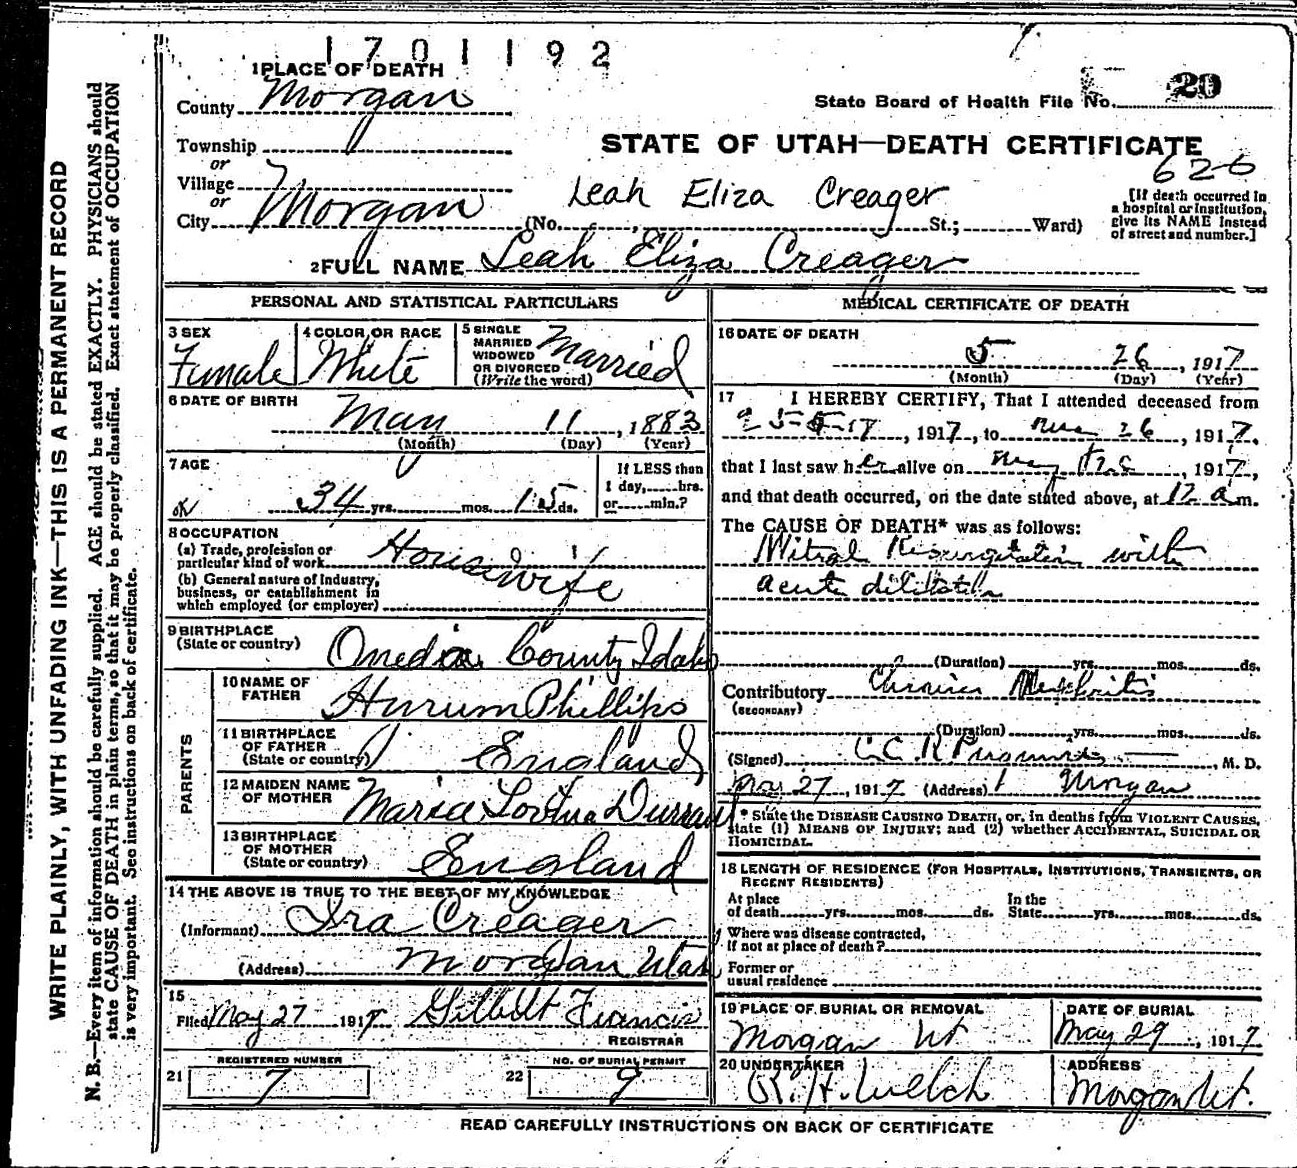 1701192
1 PLACE OF DEATH
County Morgan
State Board of Health File No. 20
Township
or
Village
or
City Morgan (No. , St.; Ward)
STATE OF UTAH—DEATH CERTIFICATE
626
Leah Eliza Creager
[If death occurred in
a hospital or institution,
give its NAME instead
of street and number.]
2 FULL NAME Leah Eliza Creager
PERSONAL AND STATISTICAL PARTICULARS
3 SEX
Female
4 COLOR OR RACE
White
5 SINGLE
MARRIED
WIDOWED
OR DIVORCED
(Write the word)
Married
6 DATE OF BIRTH
May 11, 1883
(Month) (Day) (Year)
7 AGE
34 yrs. mos. 15 ds.
If LESS than
1 day, hrs.
or min.?
8 OCCUPATION
(a) Trade, profession or
particular kind of work Housewife
(b) General nature of Industry,
business, or establishment in
which employed (or employer)
9 BIRTHPLACE
(State or country) Oneida County Idaho
PARENTS
10 NAME OF
FATHER Hyrum Phillips
11 BIRTHPLACE
OF FATHER
(State or country) England
12 MAIDEN NAME
OF MOTHER Maria Durrant
13 BIRTHPLACE
OF MOTHER
(State or country) England
14 THE ABOVE IS TRUE TO THE BEST OF MY KNOWLEDGE
(Informant) Ira Creager
(Address) Morgan Utah
15
Filed May 27 1917 Gilbert Francis
REGISTRAR
REGISTERED NUMBER
21 7
NO. OF BURIAL PERMIT
22 9
MEDICAL CERTIFICATE OF DEATH
16 DATE OF DEATH
5 26, 1917
(Month) (Day) (Year)
17 I HEREBY CERTIFY, That I attended deceased from
, 1917, to 26, 1917,
that I last saw her alive on , 1917,
and that death occurred, on the date stated above, at 12 a m.
The CAUSE OF DEATH* was as follows:
Mitral Regurgitation with
acute dilitation
(Duration) yrs. mos. ds.
Contributory Chronic Nephritis
(SECONDARY)
(Duration) yrs. mos. ds.
(Signed) , M. D.
27, 1917 (Address) Morgan
* State the DISEASE CAUSING DEATH, or, in deaths from VIOLENT CAUSES,
state (1) MEANS OF INJURY; and (2) whether ACCIDENTAL, SUICIDAL OR
HOMICIDAL.
18 LENGTH OF RESIDENCE (FOR HOSPITALS, INSTITUTIONS, TRANSIENTS, OR
RECENT RESIDENTS)
At place
of death yrs. mos. ds.
In the
State yrs. mos. ds.
Where was disease contracted,
If not at place of death?
Former or
usual residence
19 PLACE OF BURIAL OR REMOVAL
Morgan Ut
DATE OF BURIAL
May 29, 1917
20 UNDERTAKER
R. H. Welch
ADDRESS
Morgan Ut.
READ CAREFULLY INSTRUCTIONS ON BACK OF CERTIFICATE
WRITE PLAINLY, WITH UNFADING INK—THIS IS A PERMANENT RECORD
N. B.—Every item of information should be carefully supplied. AGE should be stated EXACTLY. PHYSICIANS should
state CAUSE OF DEATH in plain terms, so that it may be properly classified. Exact statement of OCCUPATION
is very important. See instructions on back of certificate.